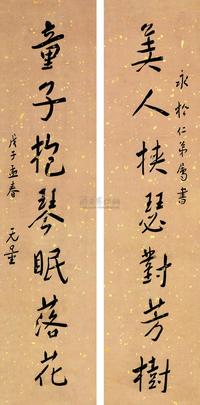 美人挟瑟對芳樹
永於仁弟屬書
童子抱琴眠落花
戊子孟春
无量